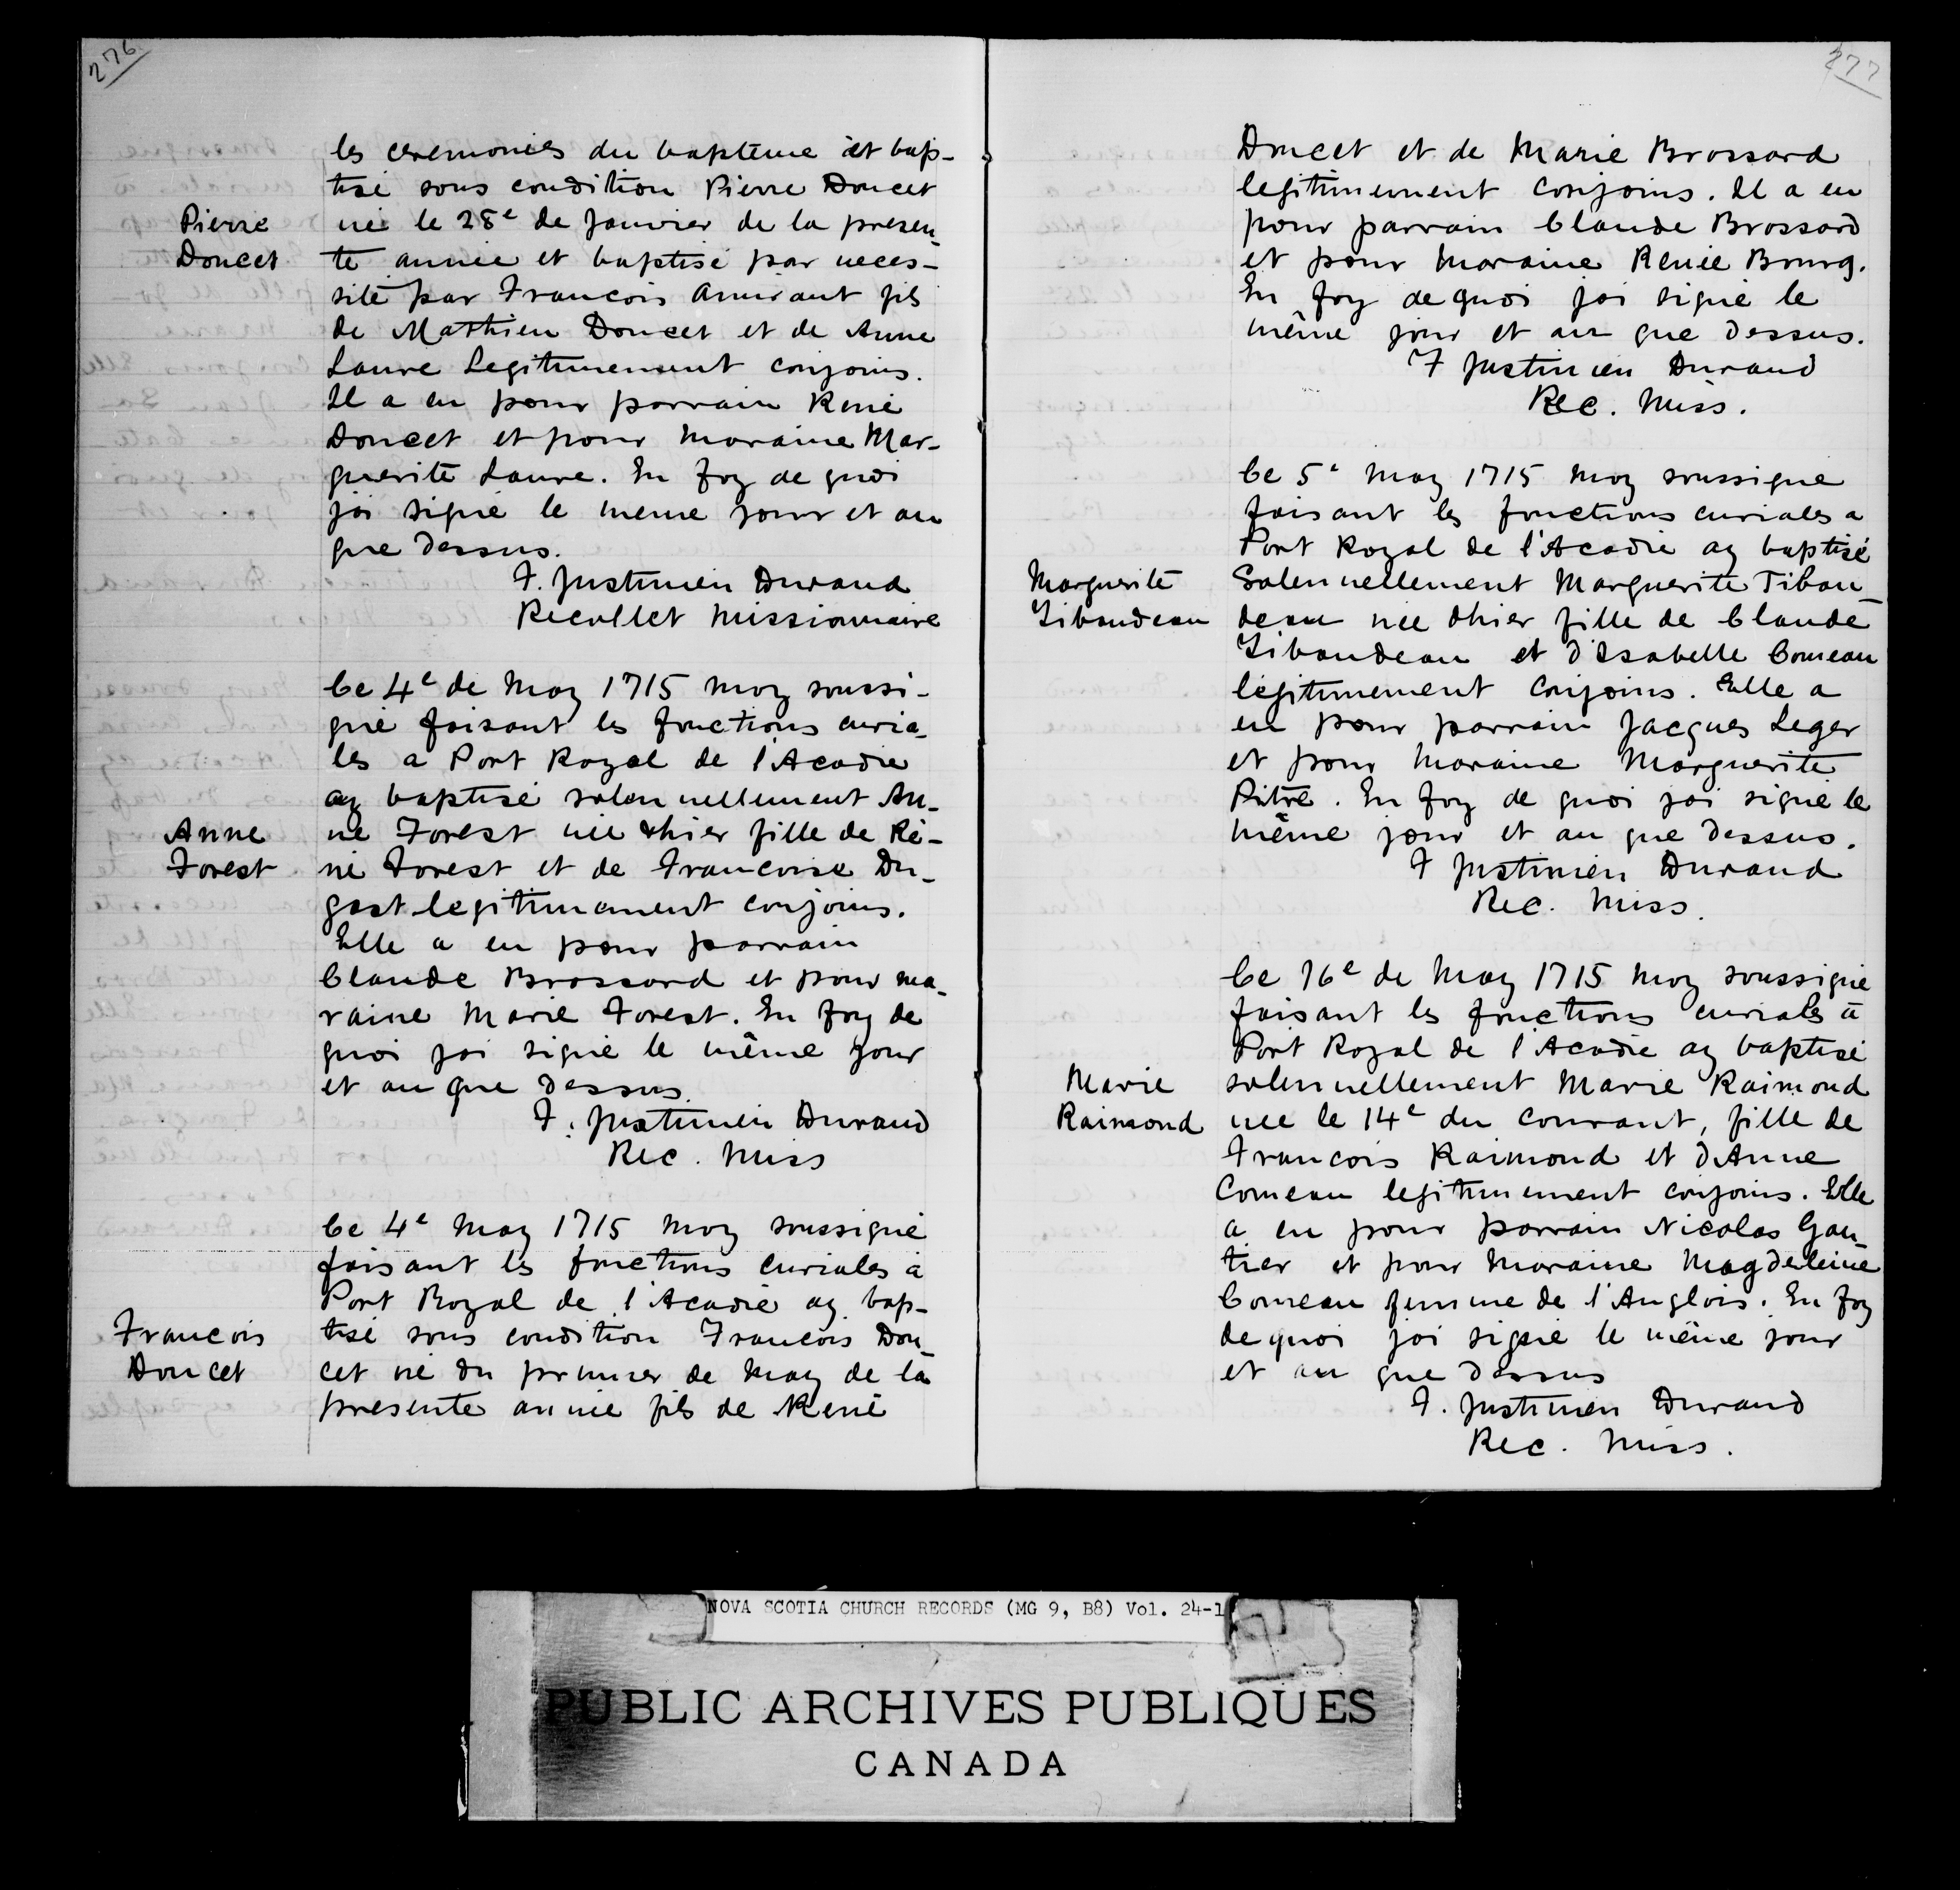 276
les ceremonies du bapteme et bap-
tisé sous condition Pierre Doucet
Pierre Doucet
né le 28e de Janvier de la presen-
te année et baptisé par neces-
sité par Francois Amirant fils
de Mathieu Doucet et de Anne
Laure Legitimement conjoins.
Il a eu pour parrain René
Doucet et pour maraine Mar-
guerite Laure. En foy de quoi
jai signé le meme jour et an
que dessus.
F. Justinien Durand
Recollet Missionnaire
Ce 4e de May 1715 moy soussi-
gné faisant les fonctions curia-
les a Port Royal de l'Acadie
ay baptisé solennellement An-
Anne Forest
ne Forest née d'hier fille de Ré-
né Forest et de Francoise Du-
gast legitimement conjoins.
Elle a eu pour parrain
Claude Brossard et pour ma-
raine Marie Forest. En foy de
quoi jai signé le même jour
et an que dessus.
F. Justinien Durand
Rec. Miss
Ce 4e May 1715 moy soussigné
faisant les fonctions curiales à
Port Royal de l'Acadie ay bap-
Francois Doucet
tisé sous condition Francois Dou-
cet né du premier de May de la
presente année fils de René
277
Doucet et de Marie Brossard
legitimement conjoins. Il a eu
pour parrain Claude Brossard
et pour Maraine Renée Bourg.
En foy de quoi jai signé le
même jour et an que dessus.
F Justinien Durand
Rec. Miss.
Ce 5e May 1715 moy soussigné
faisant les fonctions curiales a
Port Royal de l'Acadie ay baptisé
Marguerite Tibaudeau
Solennellement Marguerite Tibau-
deau née dhier fille de Claude
Tibaudeau et d'Isabelle Comeau
légitimement conjoins. Elle a
eu pour parrain Jacques Leger
et pour Maraine Marguerite
Pitre. En foy de quoi jai signé le
même jour et an que dessus.
F Justinien Durand
Rec. Miss.
Ce 16e de May 1715 moy soussigné
faisant les fonctions curiales à
Port Royal de l'Acadie ay baptisé
Marie Raimond
solennellement Marie Raimond
née le 14e du courant, fille de
Francois Raimond et d'Anne
Comeau legitimement conjoins. Elle
a eu pour parrain Nicolas Gau-
tier et pour Maraine Magdeleine
Comeau femme de l'Anglois. En foy
de quoi jai signé le même jour
et an que dessus
F. Justinien Durand
Rec. Miss.
NOVA SCOTIA CHURCH RECORDS (MG 9, B8) Vol. 24-1
PUBLIC ARCHIVES PUBLIQUES
CANADA